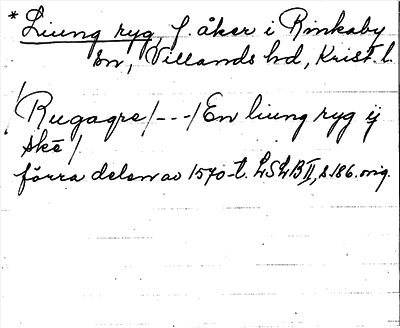 * Liung ryg, f. åker i Rinkaby
sn, Villands hd, Krist. l.
/Rugagre/---/En liung ryg ij
skē/
förra delen av 1570-t. LSLB II, s. 186. orig.